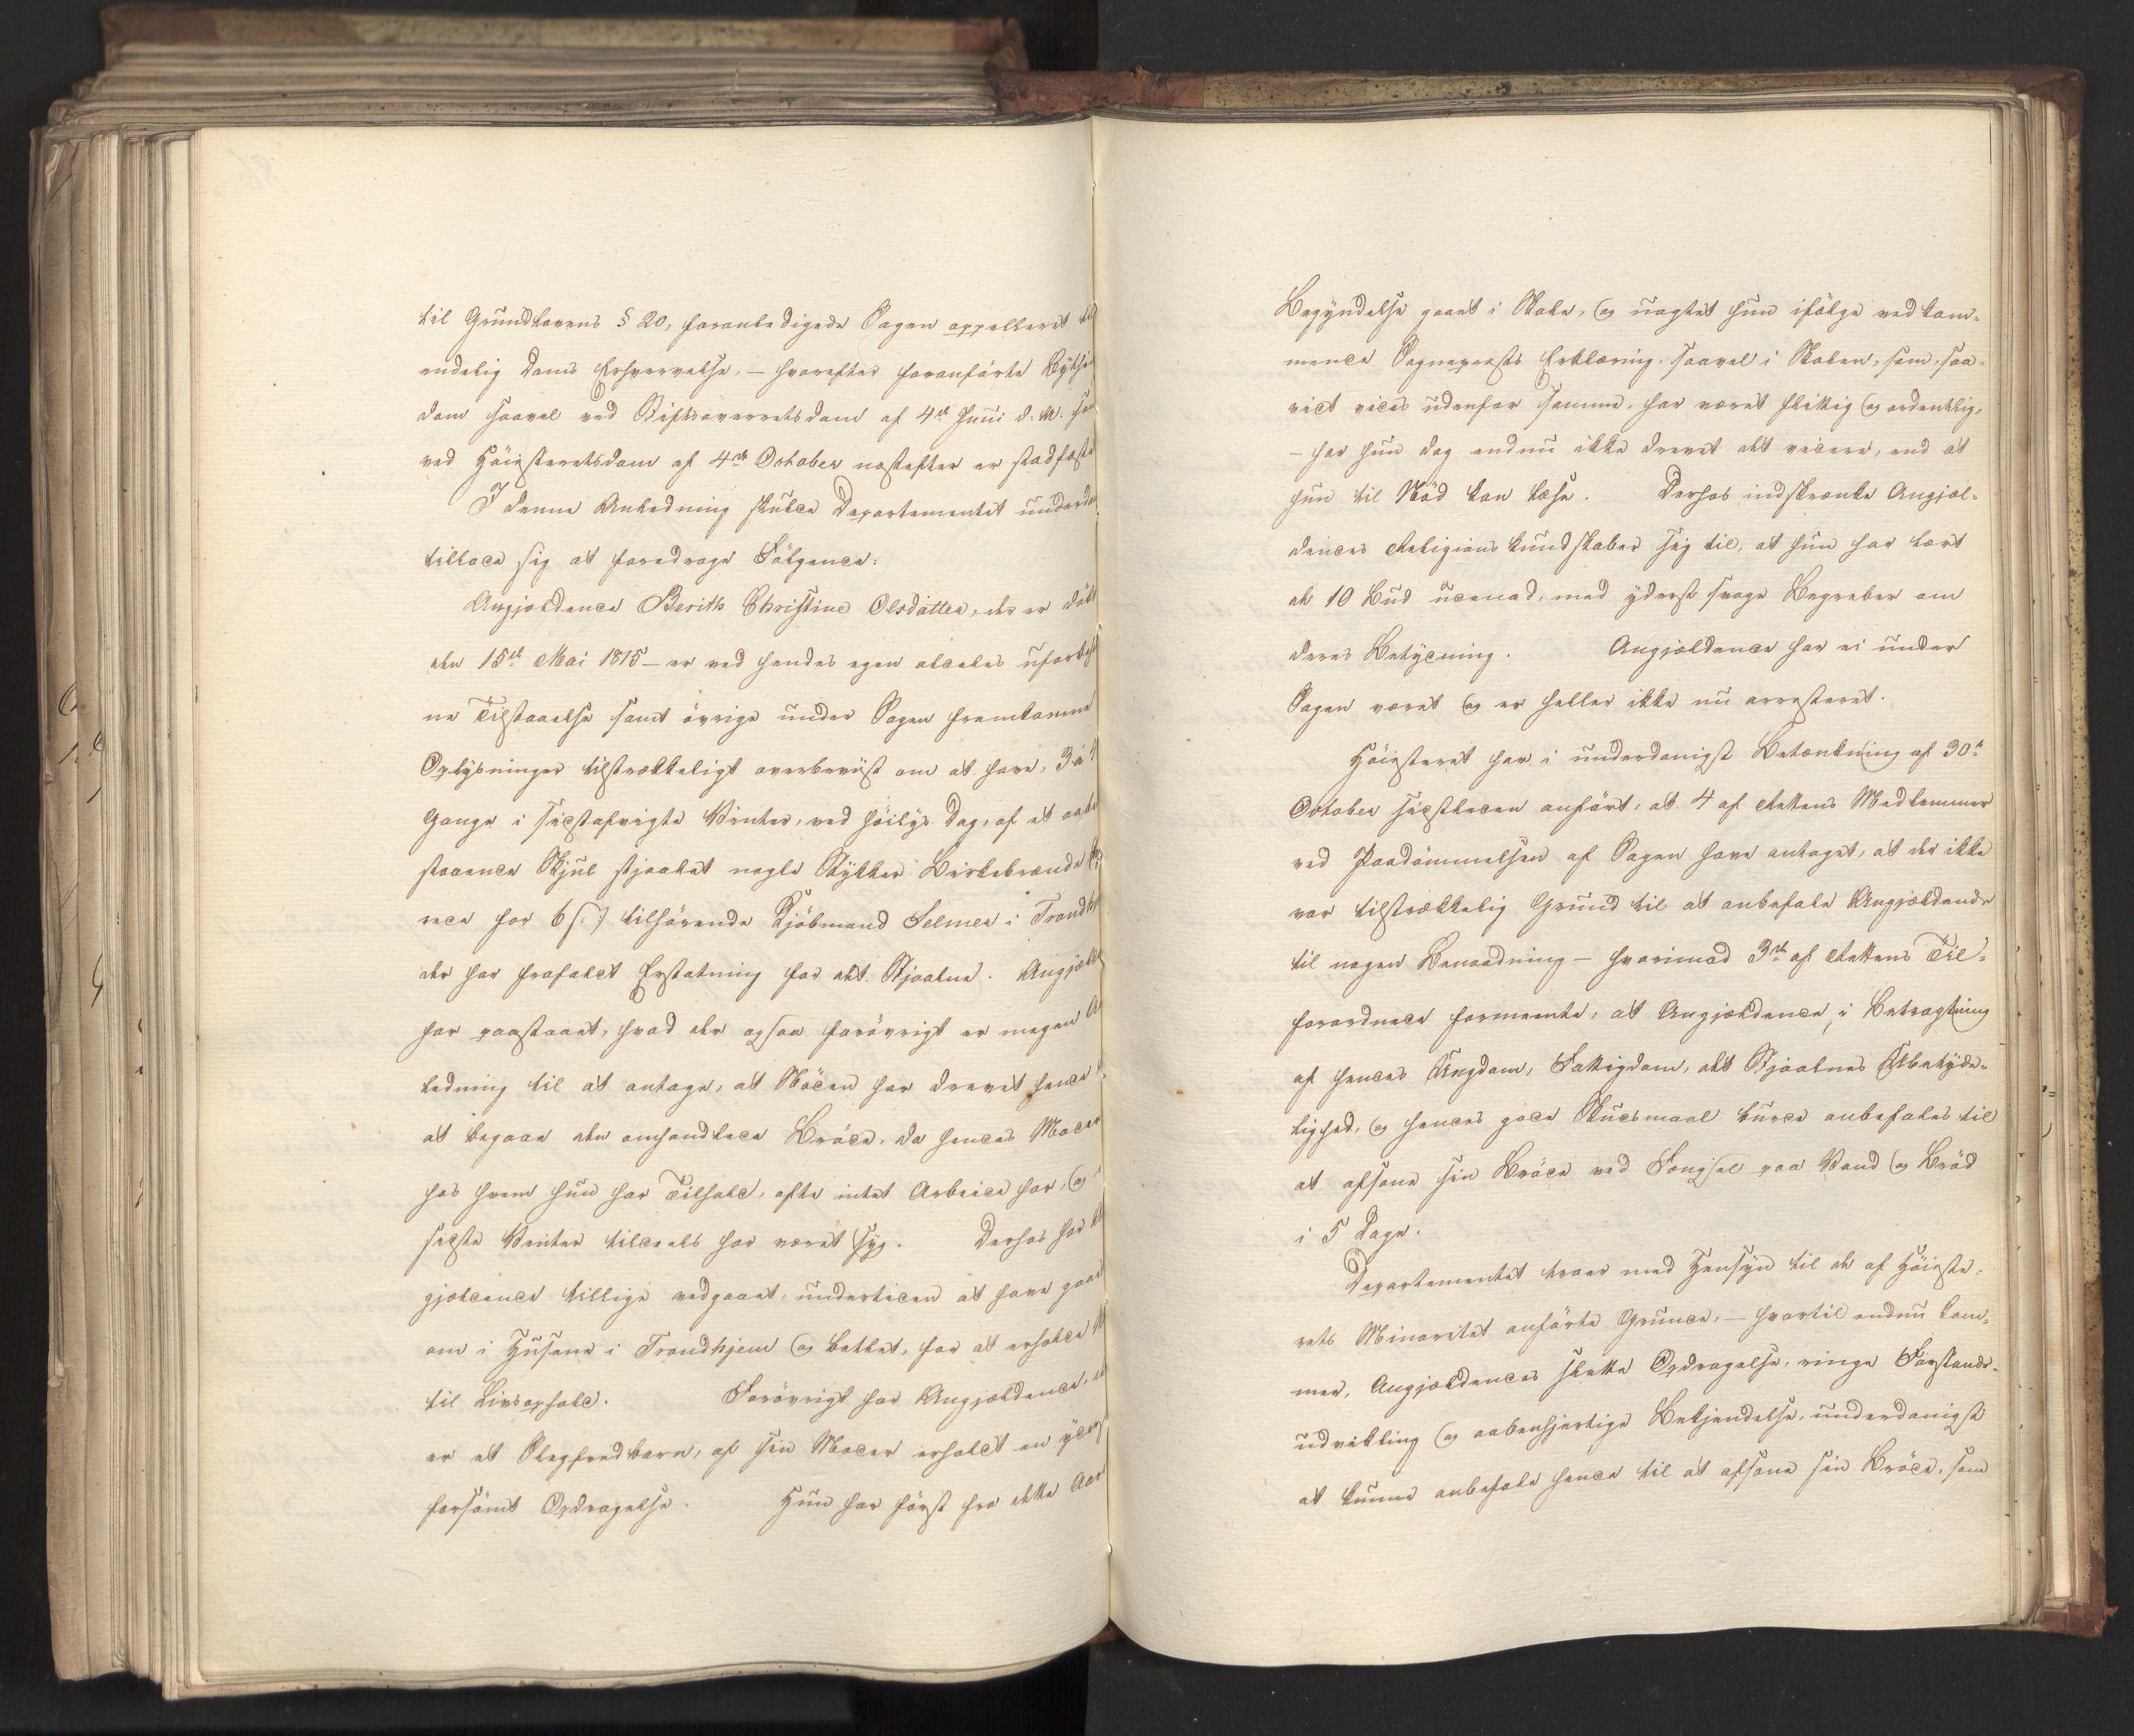 til Grundlovens § 20, foranledigede Sagen appelleret til
endelig Doms Erhvervelse, – hvorefter foranførte Bythings
dom saavel ved Stiftsoverretsdom af 4de Juni d. A. som
ved Høiesteretsdom af 4de October næstefter er stadfæstet
I denne Anledning skulde Departementet underda
tillade sig at foredrage Følgende:
Angjældende Berith Christine Olsdatter, der er døbt
den 15de Mai 1815 – er ved hendes egen aldeles uforbehold
ne Tilstaaelse samt øvrige under Sagen fremkomne
Oplysninger tilstrækkeligt overbeviist om at have, 3 à 4
Gange i sidstafvigte Vinter, ved høilys Dag, af et aabent
staaende Skjul stjaalet nogle Stykker Birkebrænde
rede for 6 s.) tilhørende Kjøbmand Selmer i Trondhj
der har frafaldt Erstatning for det Stjaalne. Angjæld
har paastaaet, hvad der ogsaa forøvrigt er megen An
ledning til at antage, at Nøden har drevet hende
at begaae den omhandlede Brøde, da hendes Moder
hos hvem hun har Tilhold, ofte intet Arbeide har, og
sidste Vinter tildeels har været syg. Derhos har An
gjældende tillige vedgaaet, undertiden at have gaaet
om i Husene i Trondhjem og betlet, for at erholde
til Livsophold. Forøvrigt har Angjældende,
er et Slegfredbarn, af sin Moder erholdt en yderst
forsømt Opdragelse. Hun har først fra dette Aars
Begyndelse gaaet i Skole, og uagtet hun ifølge vedkom-
mende Sognepræsts Erklæring, saavel i Skolen, som, saa-
vidt vides udenfor samme, har været flittig og ordentlig,
– har hun dog endnu ikke drevet det videre, end at
hun til Nød kan læse. Derhos indskrænke Angjæl-
dendes Religionskundskaber sig til, at hun har lært
de 10 Bud udenad, med yderst svage Begreber om
deres Betydning. Angjældende har ei under
Sagen været og er heller ikke nu arresteret.
Høiesteret har i underdanigst Betænkning af 30te
October sidstleden anført, at 4 af Rettens Medlemmer
ved Paadømmelsen af Sagen have antaget, at der ikke
var tilstrækkelig Grund til at anbefale Angjældende
til nogen Benaadning – hvorimod 3de af Rettens Til-
forordnede formeente, at Angjældende, i Betragtning
af hendes Ungdom, Fattigdom, det Stjaalnes Ubetyde-
lighed, og hendes gode Skudsmaal burde anbefales til
at afsone sin Brøde ved Fængsel paa Vand og Brød
i 5 Dage.
Departementet troer med Hensyn til de af Høieste-
rets Minoritet anførte Grunde, – hvortil endnu kom-
mer, Angjældendes slette Opdragelse, ringe Forstands-
udvikling og aabenhjertige Bekjendelse, underdanigst
at kunne anbefale hende til at afsone sin Brøde, som